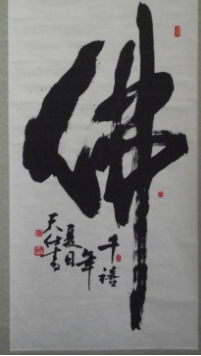 佛
千禧
年
夏日
天仕書